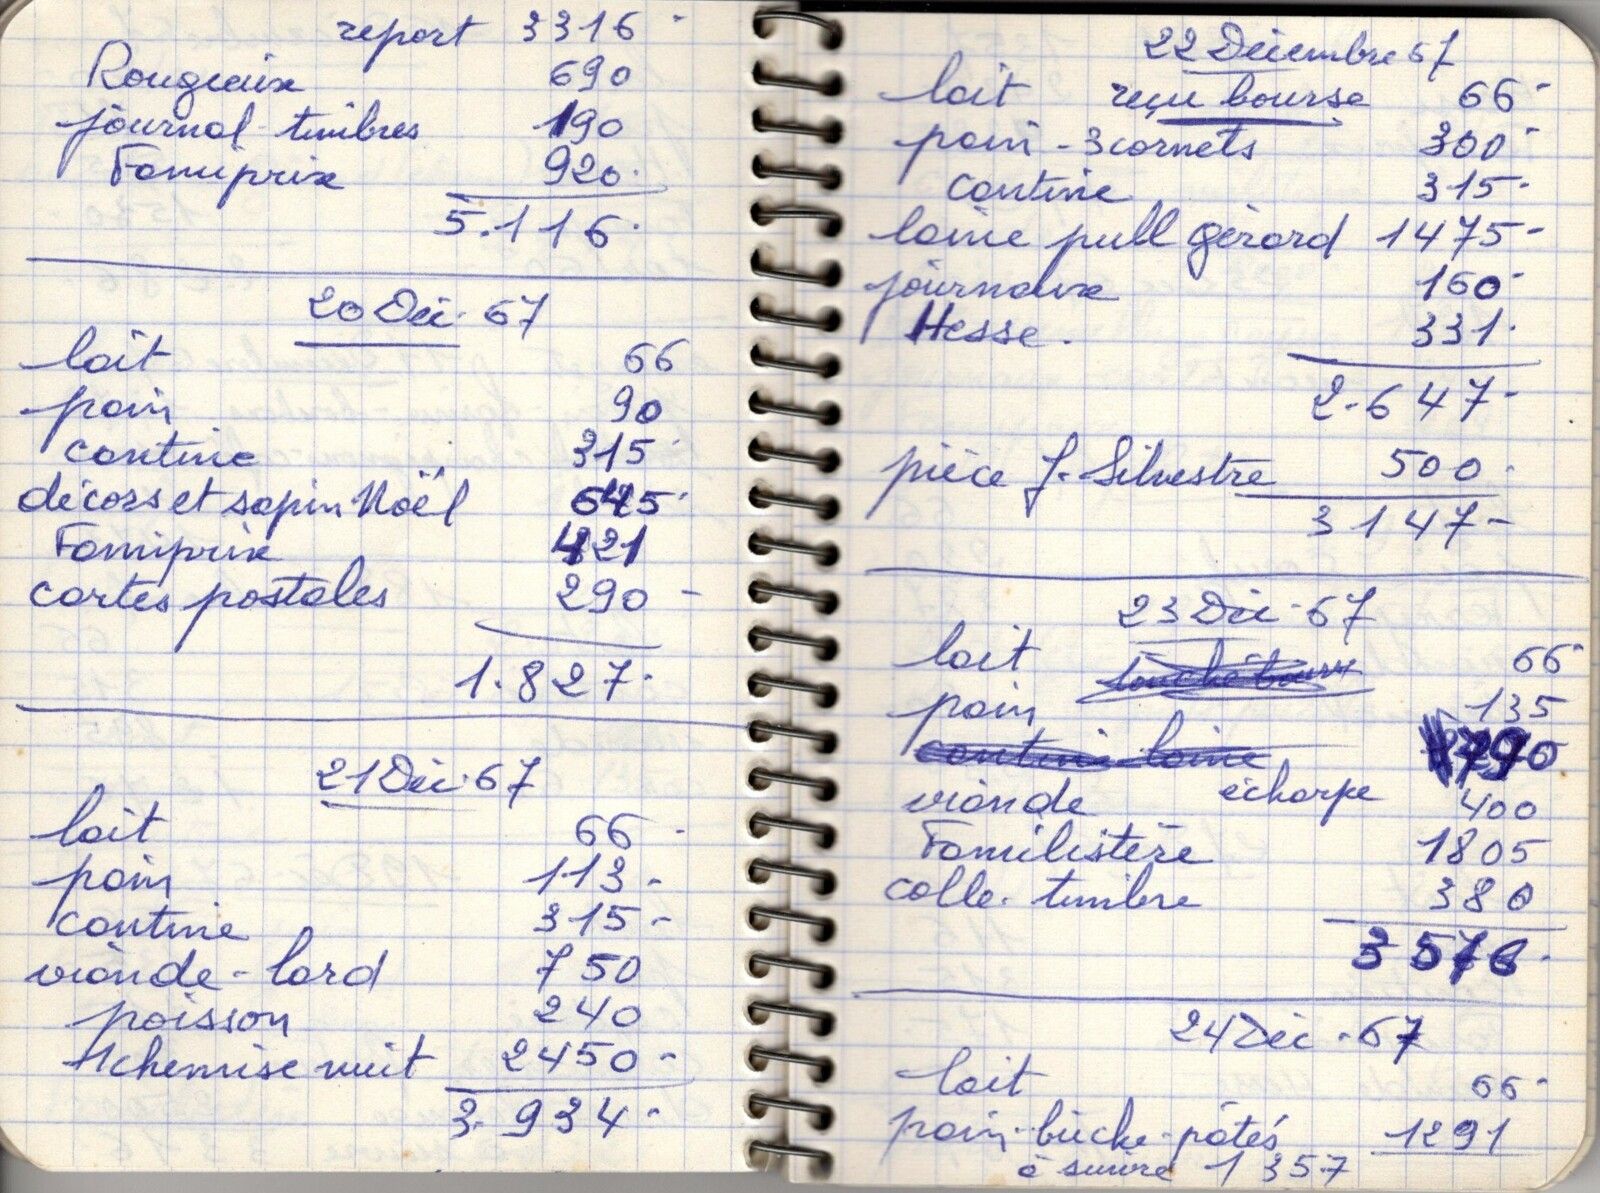 report 3316
Rougieux 690
journal-timbres 190
Famiprix 920.
5.116.
20 Déc. 67
lait 66
pain 90
cantine 315
décors et sapin Noël 645
Famiprix 421
cartes postales 290 -
1.827.
21 Déc. 67
lait 66 -
pain 113 -
cantine 315 -
viande - lard 750
poisson 240
1 chemise nuit 2450 -
3.934 -
22 Décembre 67
lait reçu bourse 66 -
pain - 3 cornets 300 -
cantine 315 -
laine pull gérard 1475 -
journaux 160 -
Hesse. 331.
2.647 -
pièce J. Silvestre 500.
3147 -
23 Déc. 67
lait 66 -
pain 135
cantine laine 790
viande écharpe 400
Familistère 1805
colle. timbre 380
3576.
24 Déc. 67
lait 66 -
pain - bûche - pâtés 1291
à suivre 1357